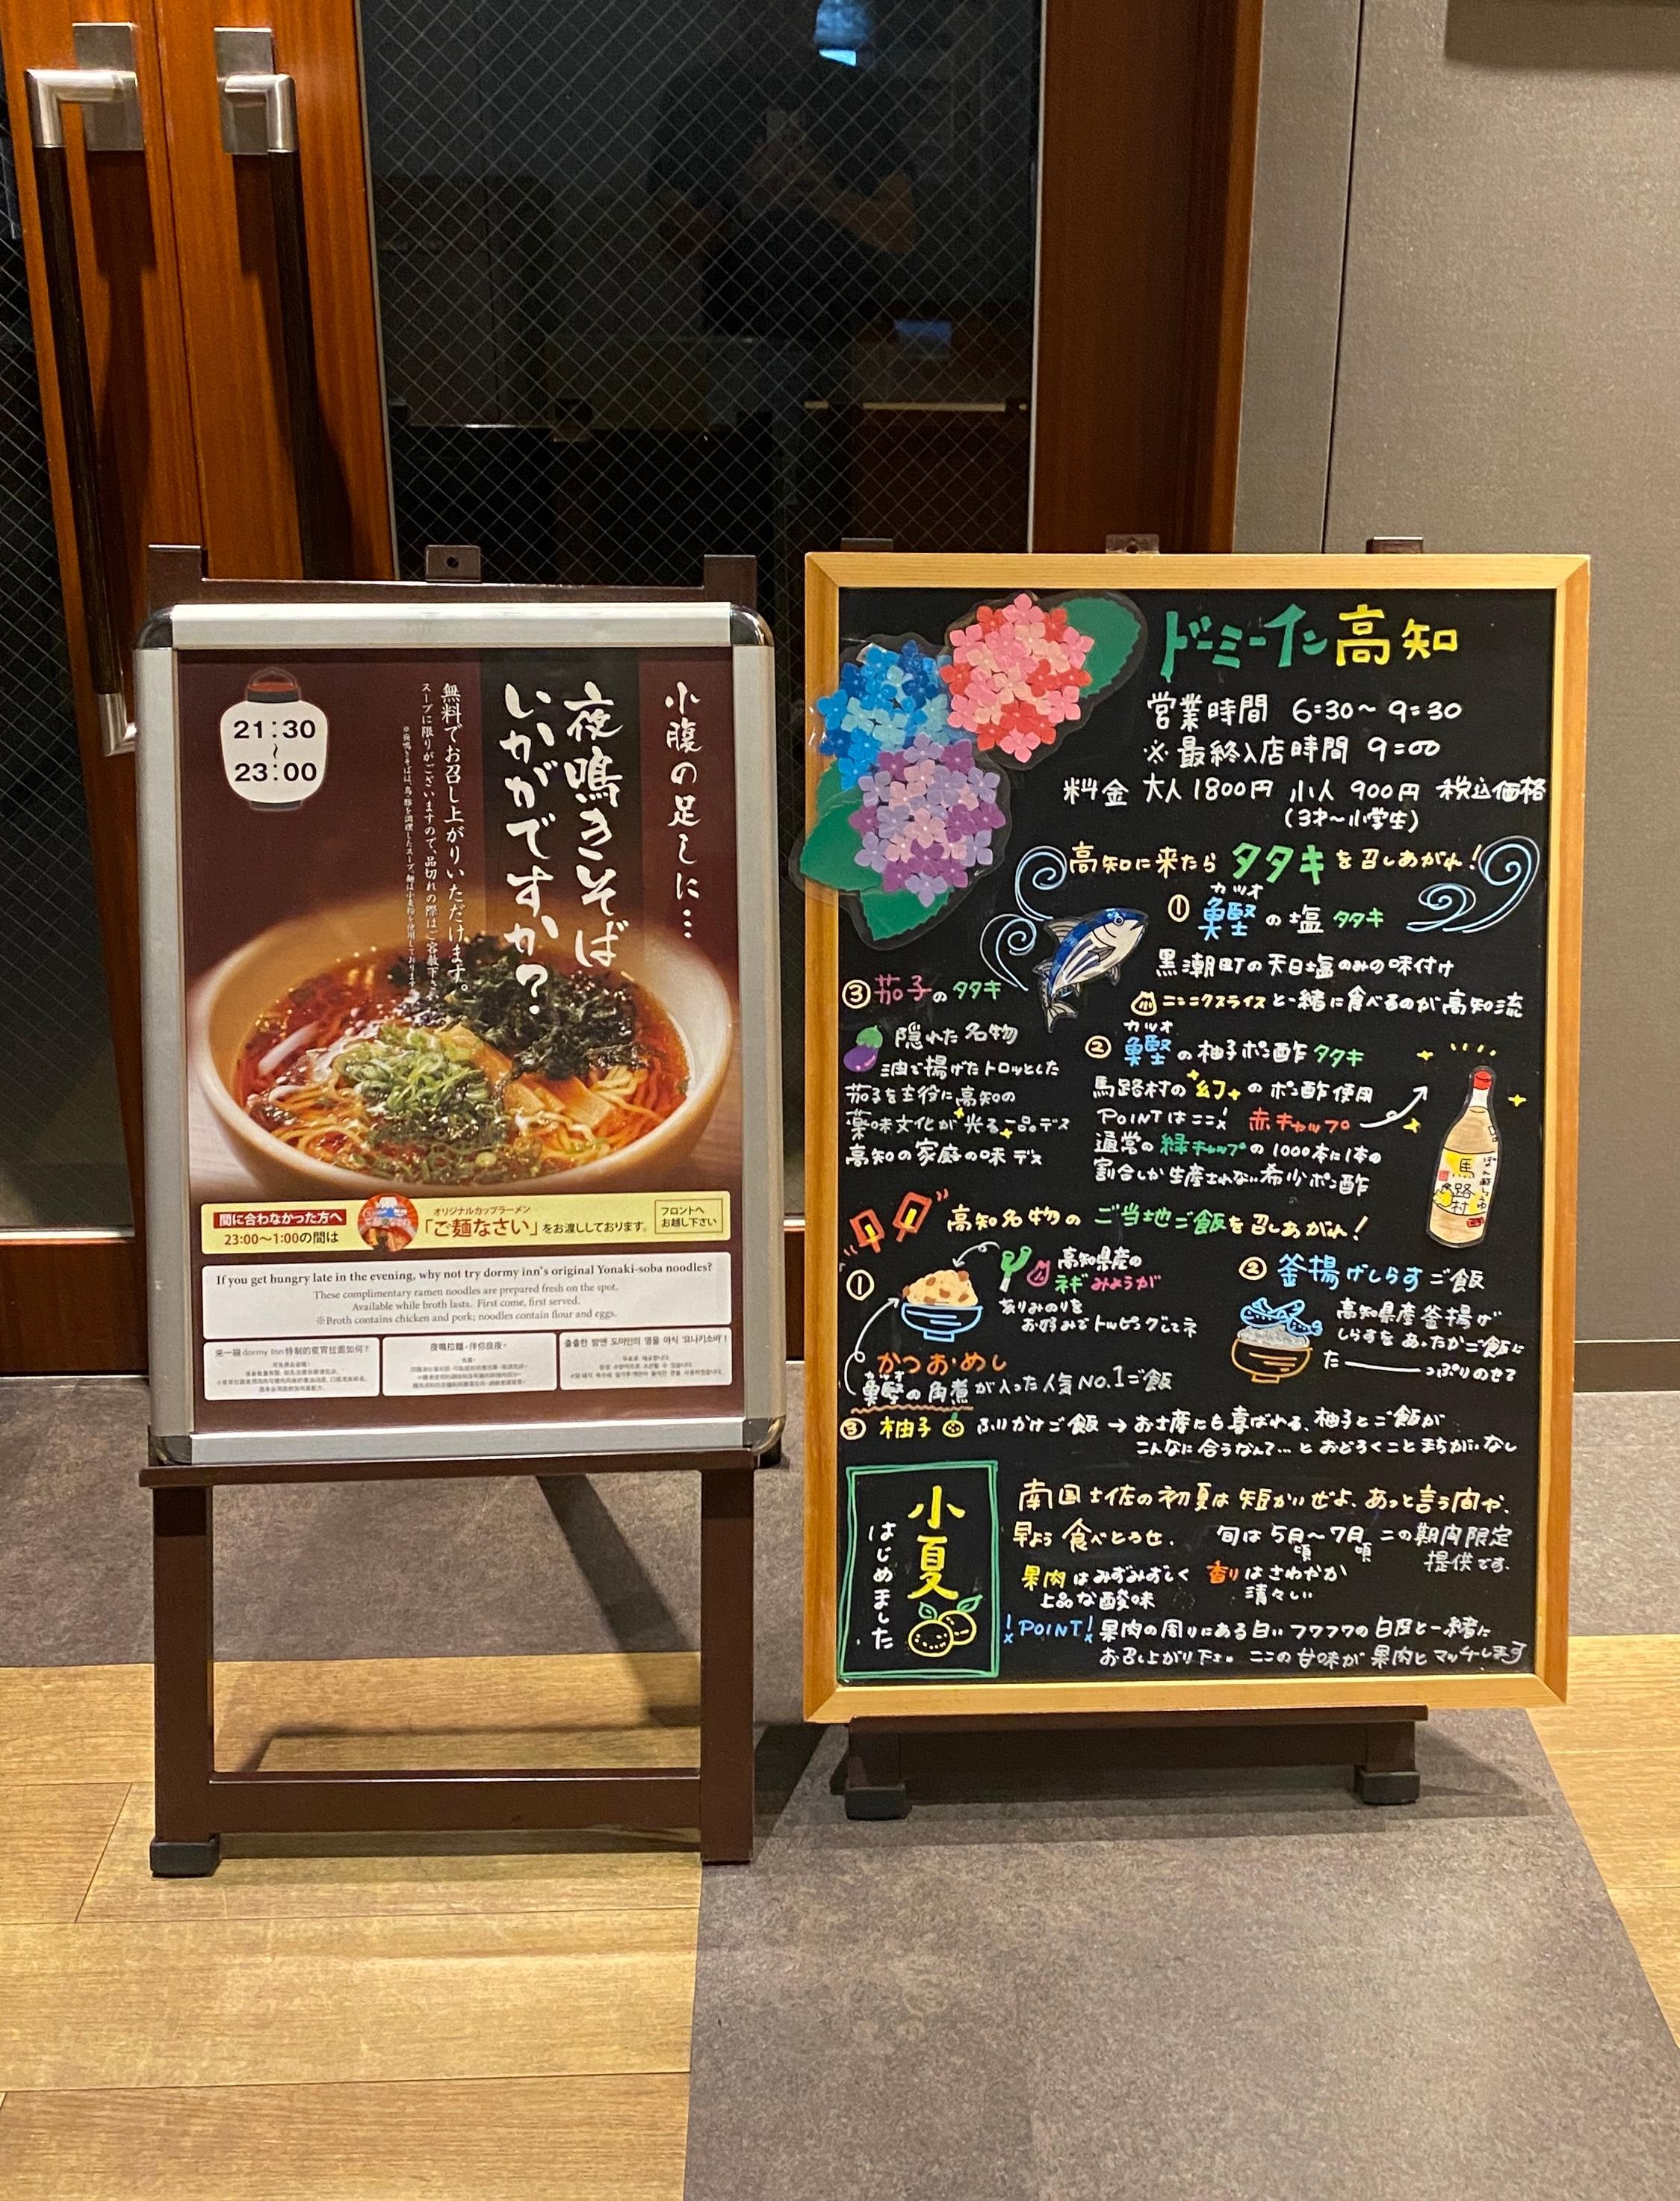 21:30
～
23:00
小腹の足しに…
夜鳴きそば
いかがですか？
無料でお召し上がりいただけます。
スープに限りがございますので、品切れの際はご容赦下さい
間に合わなかった方へ
23:00〜1:00の間は
オリジナルカップラーメン
「ご麺なさい」をお渡ししております。
フロントへ
お越し下さい
If you get hungry late in the evening, why not try dormy inn's original Yonaki-soba noodles?
These complimentary ramen noodles are prepared fresh on the spot.
Available while broth lasts. First come, first served.
※Broth contains chicken and pork; noodles contain flour and eggs.
来一碗 dormy Inn 特制的夜宵拉面如何？
夜鳴拉麵・伴你良夜。
출출한 밤엔 도미인의 명물 야식 '요나키소바'!
ドーミーイン高知
営業時間 6:30〜9:30
※最終入店時間 9:00
料金 大人1800円 小人 900円 税込価格
(3才〜小学生)
高知に来たら タタキを召しあがれ！
カツオ
① 鰹の塩タタキ
黒潮町の天日塩のみの味付け
ニンニクスライスと一緒に食べるのが高知流
カツオ
② 鰹の柚子ポン酢タタキ
馬路村の幻のポン酢使用
POINTはここ！ 赤キャップ
通常の緑キャップの1000本に1本の
割合しか生産されない希少ポン酢
馬路村
ぽん酢しょうゆ
③茄子のタタキ
隠れた名物
油で揚げたトロッとした
茄子を主役に高知の
薬味文化が光る一品デス
高知の家庭の味デス
高知名物のご当地ご飯を召しあがれ！
①
高知県産の
ネギ みょうが
ありみのりを
お好みでトッピングしてネ
かつおめし
カツオ
鰹の角煮が入った人気NO.1ご飯
② 釜揚げしらすご飯
高知県産釜揚げ
しらすをあったかご飯に
た――っぷりのせて
③ 柚子 ふりかけご飯 → お土産にも喜ばれる、柚子とご飯が
こんなに合うなんて…とおどろくことまちがいなし
小夏
はじめました
南国土佐の初夏は短かいぜよ、あっと言う間や、
早よう食べとうせ．
旬は5月頃〜7月頃 この期間限定
提供です．
果肉はみずみずしく
上品な酸味
香りはさわやか
清々しい
！POINT！果肉の周りにある白いフワフワの白皮と一緒に
お召し上がり下さい ここの甘味が果肉とマッチします